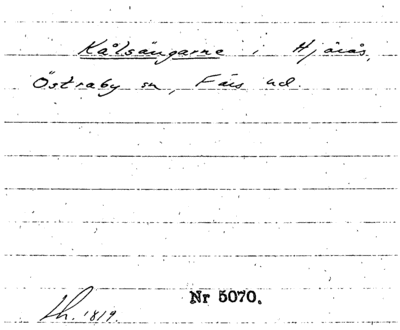 Kålsängarne i Hjärås,
Östraby sn, Färs hd.
Nr 5070.
1819.